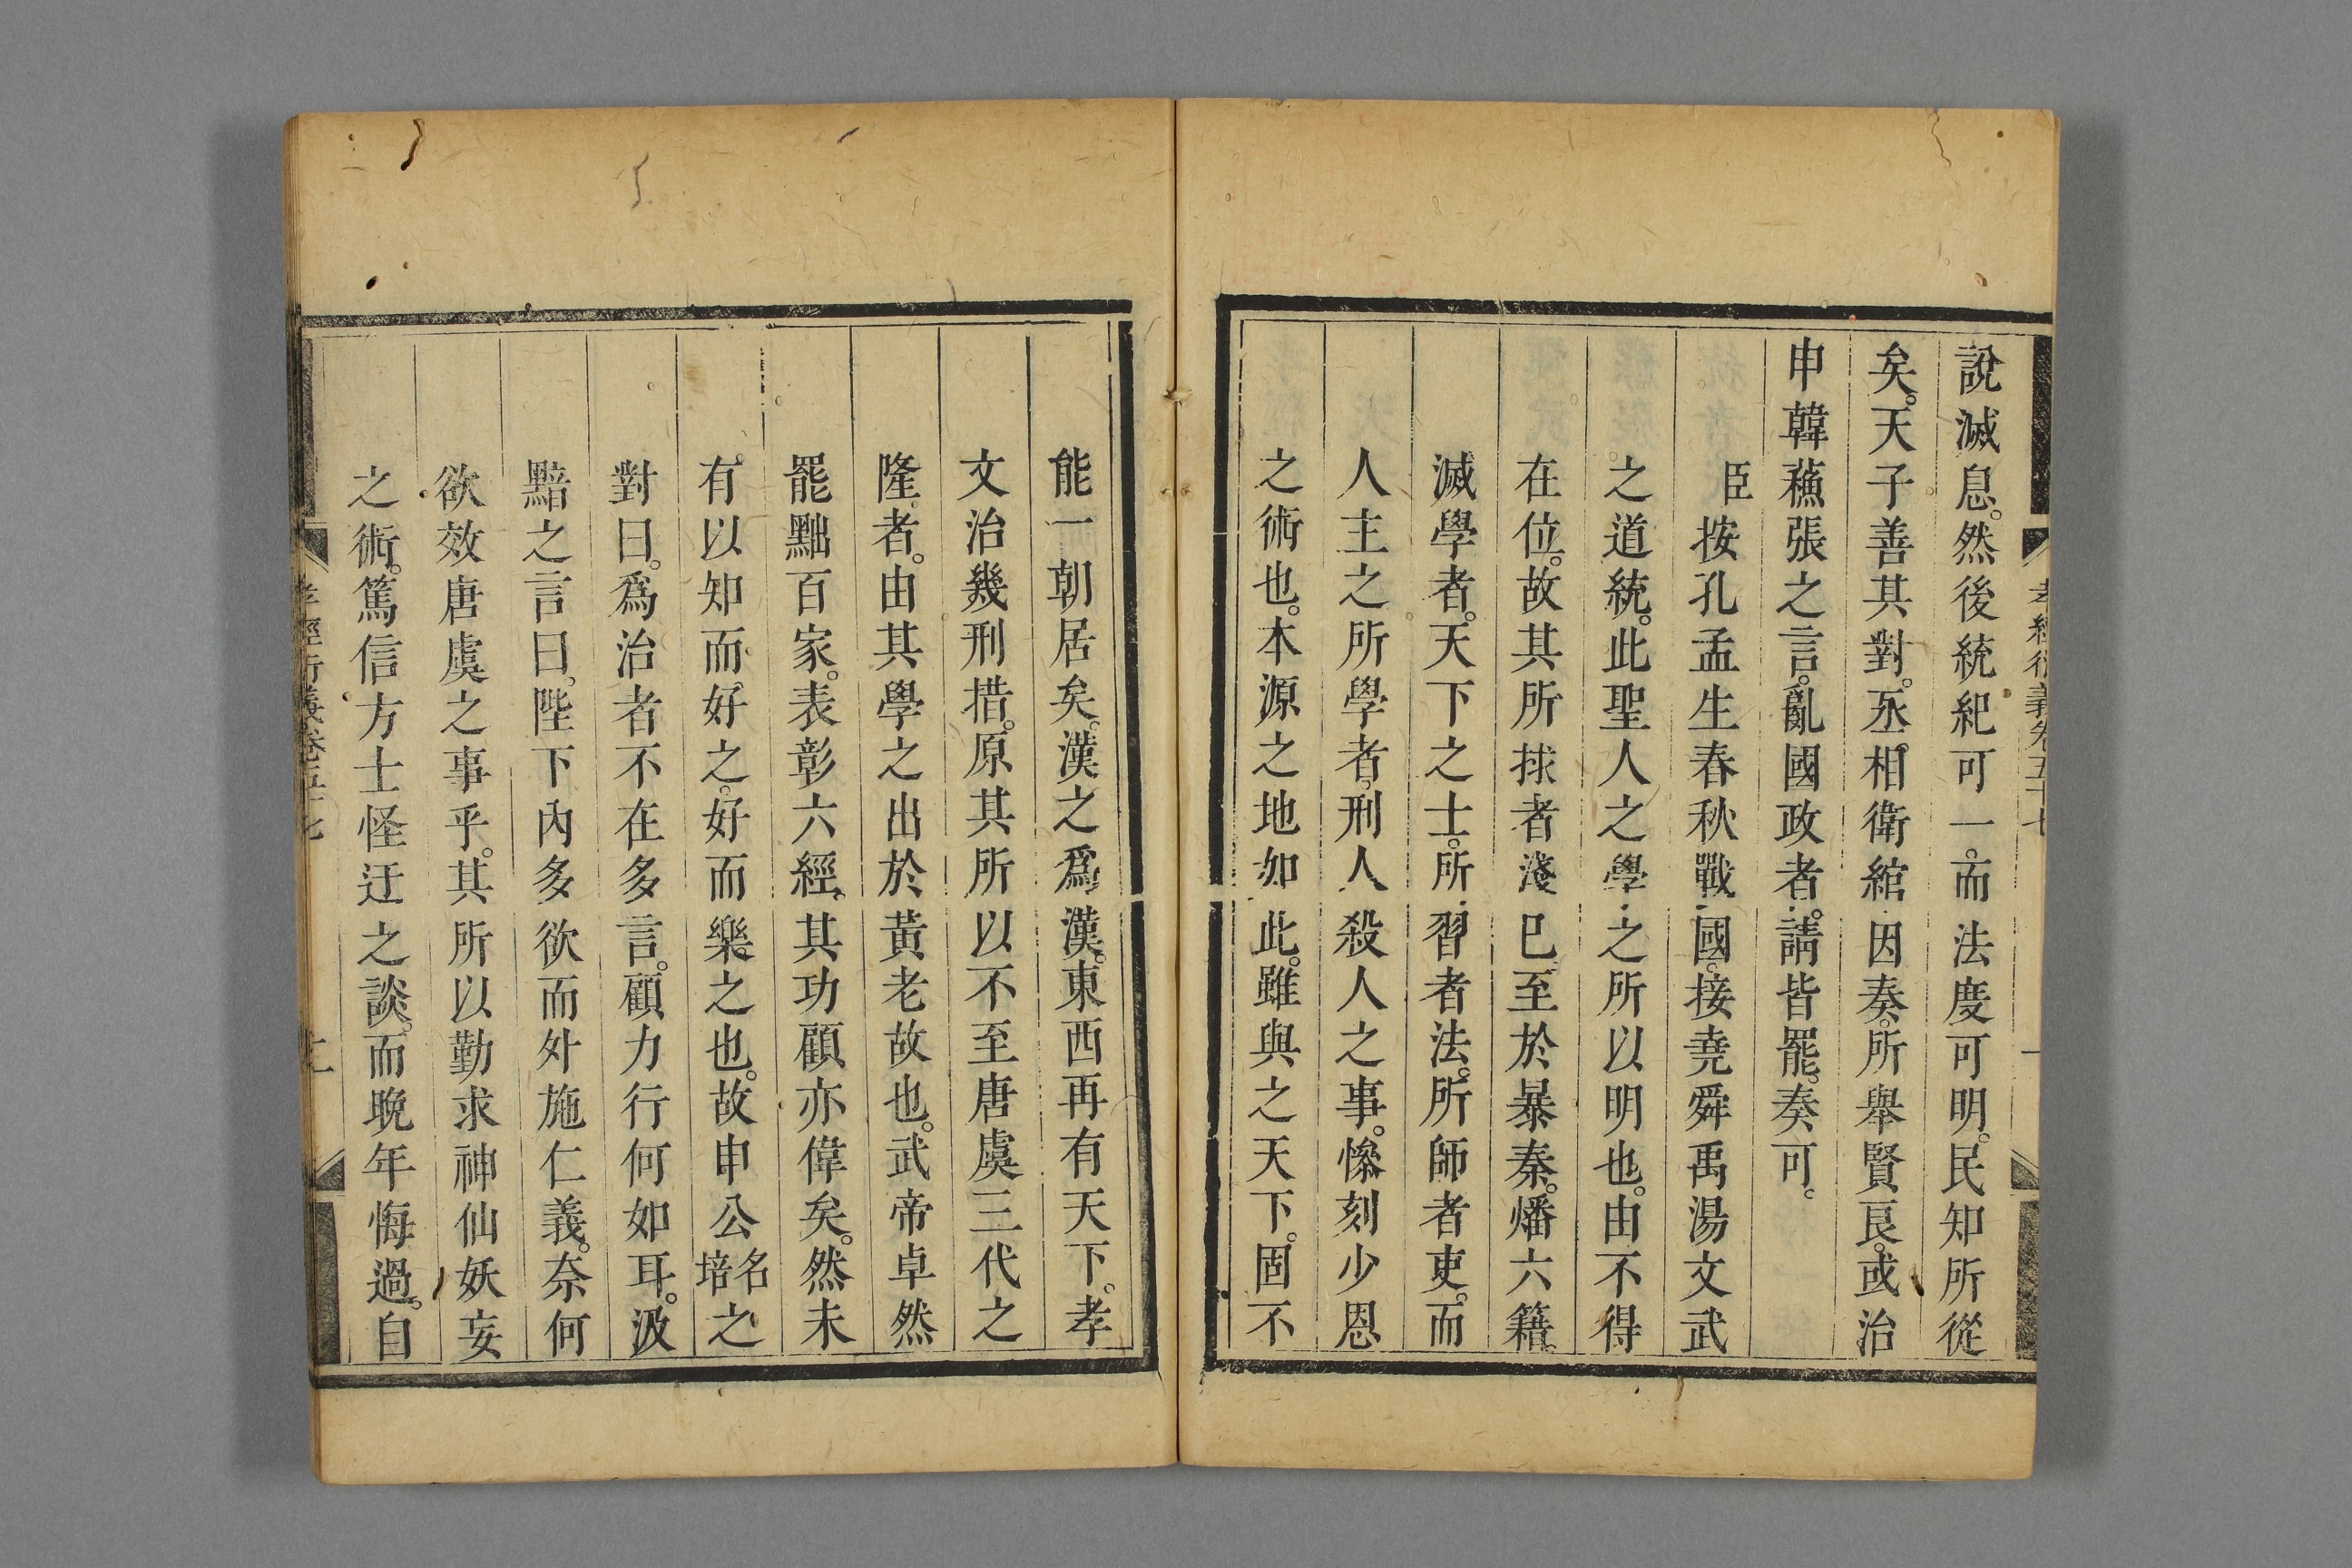 說滅息。然後統紀可一。而法度可明。民知所從
矣。天子善其對。丞相衛綰因奏。所舉賢良。或治
申韓蘓張之言。亂國政者。請皆罷。奏可。
臣按孔孟生春秋戰國。接堯舜禹湯文武
之道統。此聖人之學之所以明也。由不得
在位。故其所捄者淺。已至於暴秦。燔六籍。
滅學者。天下之士。所習者法。所師者吏。而
人主之所學者。刑人殺人之事。慘刻少恩
之術也。本源之地如此。雖與之天下。固不
能一朝居矣。漢之爲漢。東西再有天下。孝
文治幾刑措。原其所以不至唐虞三代之
隆者。由其學之出於黃老故也。武帝卓然
罷黜百家。表彰六經。其功顧亦偉矣。然未
有以知而好之。好而樂之也。故申公名培之
對曰。爲治者不在多言。顧力行何如耳。汲
黯之言曰。陛下內多欲而外施仁義。奈何
欲效唐虞之事乎。其所以勤求神仙妖妄
之術。篤信方士怪迂之談。而晚年悔過。自
孝經衍義卷五十七